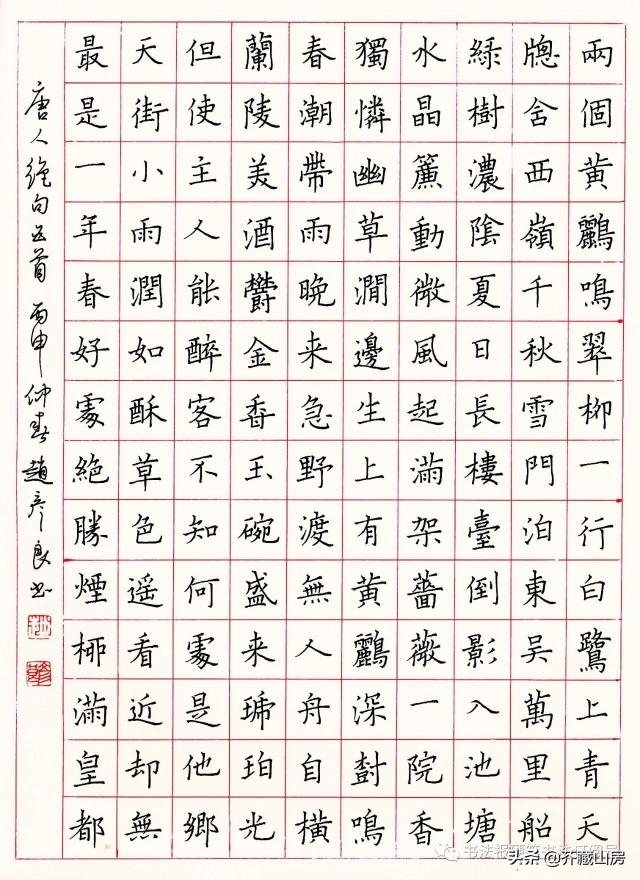 兩個黃鸝鳴翠柳一行白鷺上青天
牕含西嶺千秋雪門泊東吳萬里船
綠樹濃陰夏日長樓臺倒影入池塘
水晶簾動微風起滿架薔薇一院香
獨憐幽草澗邊生上有黃鸝深樹鳴
春潮帶雨晚来急野渡無人舟自橫
蘭陵美酒鬱金香玉碗盛来琥珀光
但使主人能醉客不知何處是他鄉
天街小雨潤如酥草色遥看近却無
最是一年春好處絕勝煙柳滿皇都
唐人絕句五首 丙申仲春趙彥良书
头条 @芥藏山房